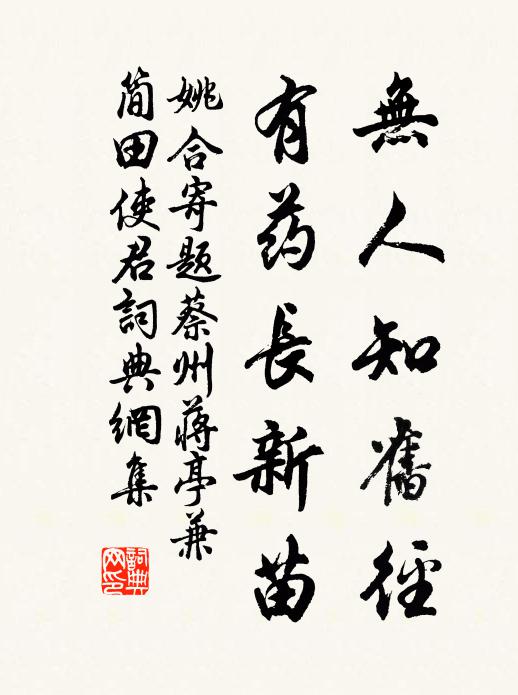 無人知舊徑
有药長新苗
姚合寄題蔡州蔣亭兼
簡田使君詞典網集
詞典网印